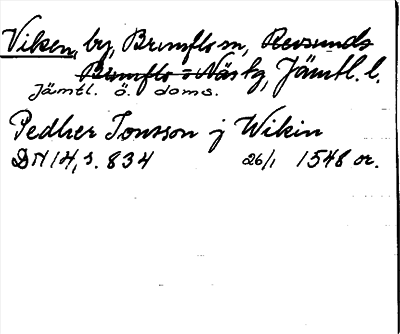 Viken, by, Brunflo sn, Revsunds
Brunflo o Näs tg, Jämtl. l.
Jämtl. ö. doms.
Pedher Jonsson j Wikin
DN 14, s. 834 26/1 1548 or.